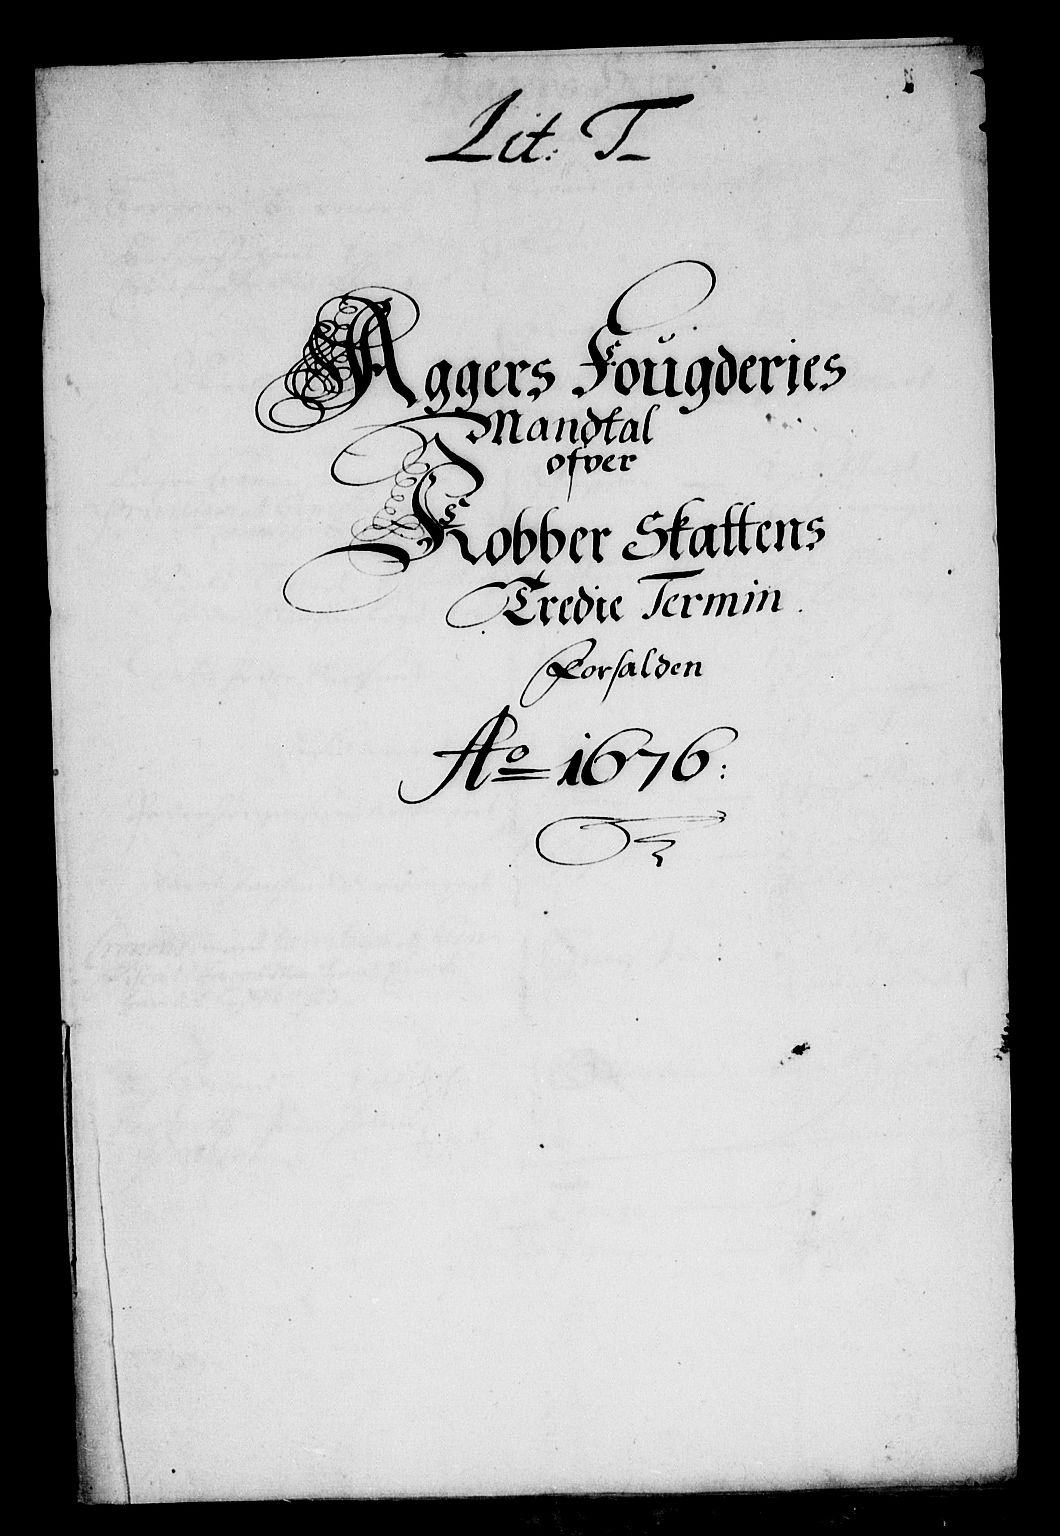 Lit: T
Aggers Foŭgderies
Mandtal
ofver
Kobber Skattens
Tredie Termin
Forfalden
Ao 1676: